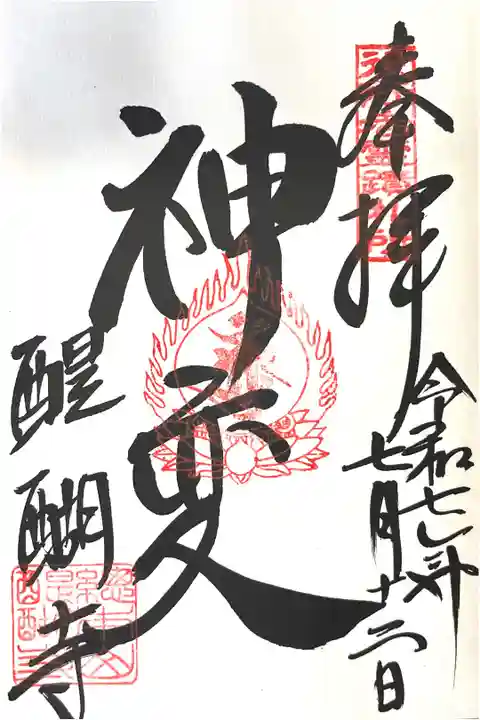 奉拝
令和七年
七月十二日
神変
醍醐寺